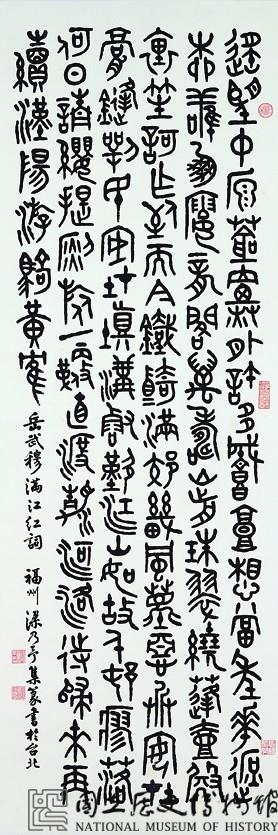 遙望中原荒煙外許多城郭想當年花遮
柳護鳳樓龍閣萬歲山前珠翠繞蓬壺殿
裏笙歌作到而今鐵騎滿郊畿風塵惡兵安在
膏鋒鍔民安在填溝壑歎江山如故千村寥落
何日請纓提銳旅一鞭直渡清河洛待歸來再
續漢陽游騎黃鶴
岳武穆滿江紅詞 福州梁乃予集篆書於台北
國立歷史博物館
NATIONAL MUSEUM OF HISTORY